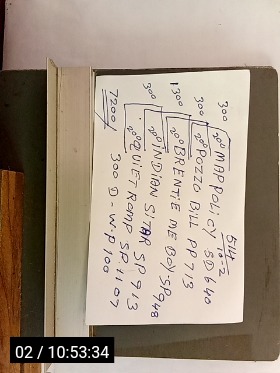 5/4
10-2
300 200 MAP POLICY SD 640
300 200 POZZO BILL PP 713
1300 200 BRENTIE ME BOY-SP948
300 200 INDIAN SITAR SP 913
200 QUIET ROMP SP 1107
7200/
300 D-W-P 100
02 / 10:53:34